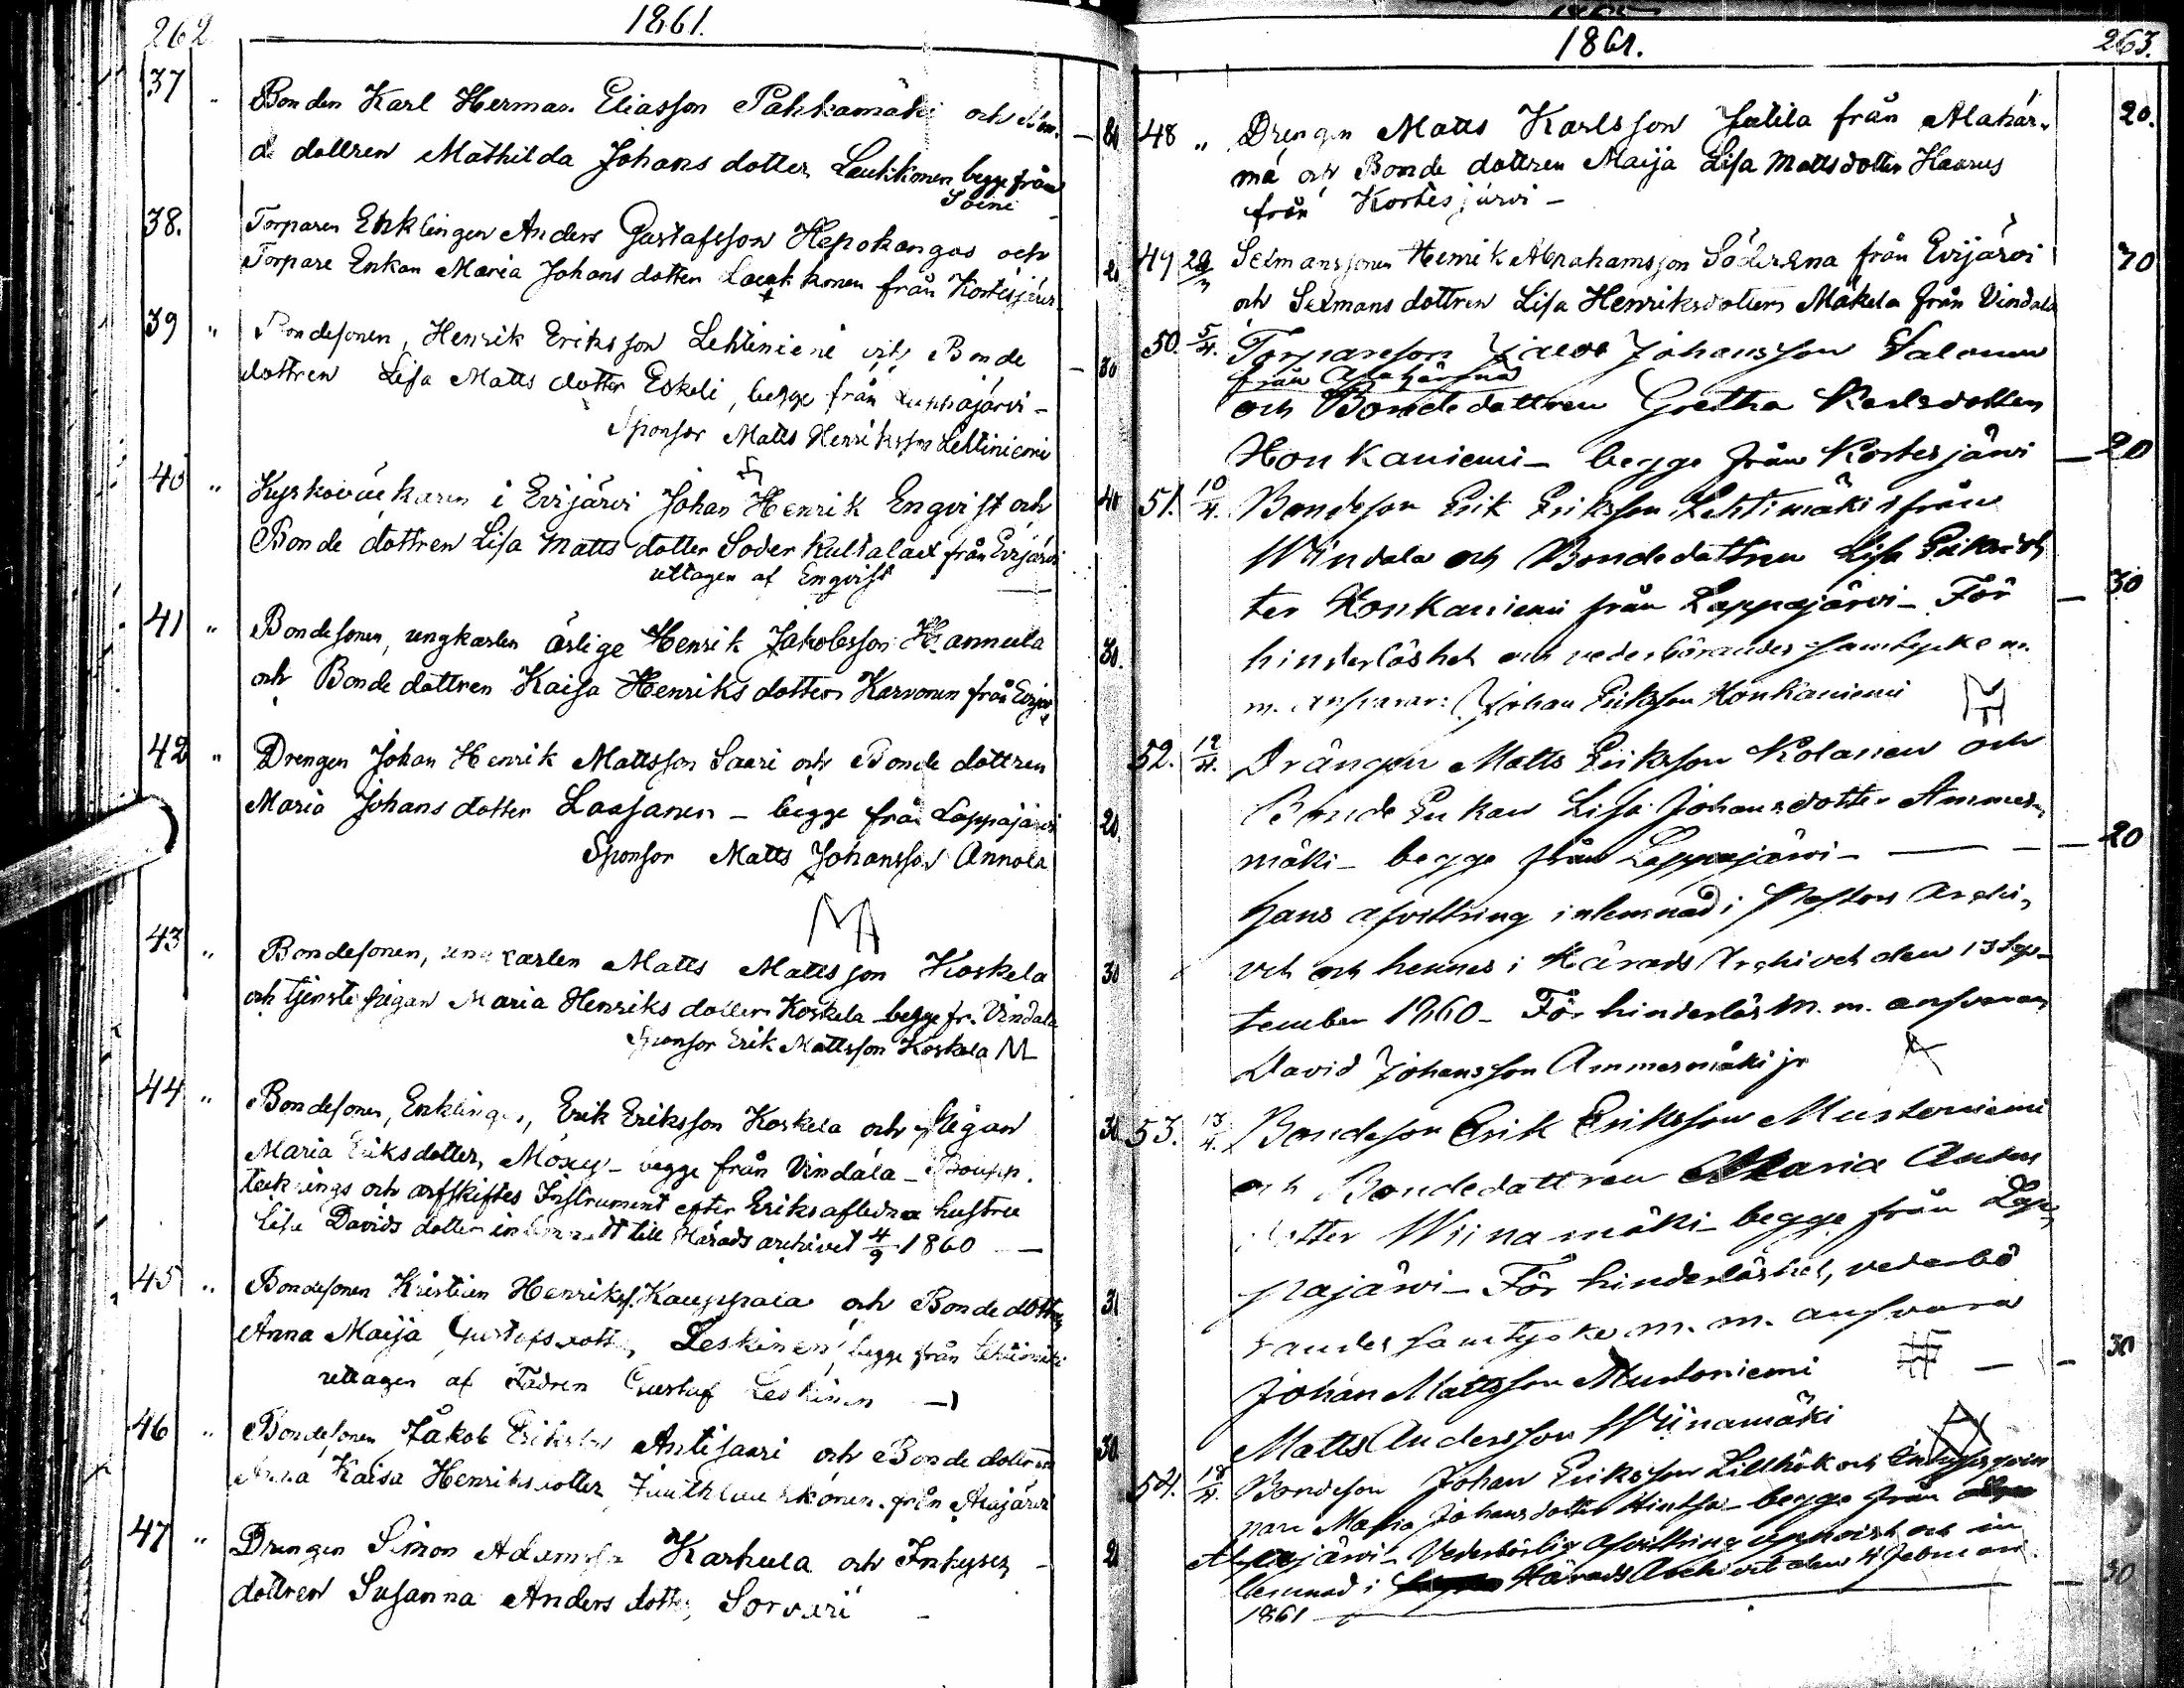 262
1861.
37 " Bonden Karl Herman Eliasson Pahkamäki och Bon-
de dottren Mathilda Johans dotter Laukkonen begge från
Soini
38. Torparen Enklingen Anders Gustafsson Hepokangas och
Torpare Enkan Maria Johans dotter Laukkonen från Kortesjärvi 20
39 " Bondesonen, Henrik Eriksson Lehtiniemi och Bonde
dottren Lisa Matts dotter Eskeli, begge från Lappajärvi – 30
Sponsor Matts Henriksson Lehtiniemi
40 " Kyrkoväktaren i Evijärvi Johan Henrik Engvist och 40
Bonde dottren Lisa Matts dotter Söderkultalax från Evijärvi
uttagen af Engvist
41 " Bondesonen, ungkarlen ärlige Henrik Jakobsson Hannula 30.
och Bonde dottren Kaisa Henriks dotter Karvonen från Evijär
42 " Drengen Johan Henrik Mattsson Saari och Bonde dottren
Maria Johans dotter Laasanen – begge från Lappajärvi 20.
Sponsor Matts Johansson Annola
43 " Bondesonen, ungkarlen Matts Mattsson Koskela 30
och tjenstepigan Maria Henriks dotter Koskela begge fr. Vindala
Sponsor Erik Mattsson Koskela
44 " Bondesonen, Enklingen, Erik Eriksson Koskela och Pigan 30
Maria Eriksdotter Möxy – begge från Vindala – Boupp-
tecknings och arfskiftes Instrument efter Eriks aflidna hustru
Lisa Davids dotter inlemnadt till Härads archivet 4/9 1860 —
45 " Bondesonen Kristian Henrikss. Kauppala och Bonde dottren
Anna Maija Gustafsdotter Leskinen, begge från Lehtimäki
uttagen af Fadren Gustaf Leskinen —
46 " Bondesonen Jakob Eriksson Antisaari och Bonde dottren 30
Anna Kaisa Henriksdotter från Alajärvi
47 " Drengen Simon Adamsson Karhula och Inhyses – 20
dottren Susanna Anders dotter Sorvari –
1861.
263.
48 " Drengen Matts Karlsson Jutila från Alahär- 20.
mä och Bonde dottren Maija Lisa Mattsdotter Haarus
från Kortesjärvi –
49 Sexmanssonen Henrik Abrahamsson Söderena från Evijärvi 70
och Sexmans dottren Lisa Henriksdotter Mäkelä från Vindala
50. 5/4. Torpareson Johansson Salonen
från Alahärmä
och Bondedottren Gretha Karlsdotter
Honkaniemi – begge från Kortesjärvi — 20
51. 10/4. Bondeson Erik Eriksson Lehtimäki från
Windala och Bondedottren Lisa Eriksdot
ter Honkaniemi från Lappajärvi – För — 30
hinderlöshet och vederbörandes samtycke m.
m. ansvarar: Johan Eriksson Honkaniemi
52. 12/4. Drängen Matts Eriksson Kolanen och
Bonde Enkan Lisa Johansdotter Ammes-
mäki – begge från Lappajärvi – — 20
hans afvittring inlemnad i Pastors Archi-
vet och hennes i Härads Archivet den 13 Sep-
tember 1860 – För hinderlös m. m. ansvarar
David Johansson Ammesmäki jr
53. 13/4. Bondeson Erik Eriksson Mustoniemi
och Bondedottren Maria Anders
dotter Wiinamäki – begge från Lap-
pajärvi – För hinderlöshet, vederbö
randes samtycke m. m. ansvara
Johan Mattsson Mustoniemi — 30
Matts Andersson Wiinamäki
54. 18/4. Bondeson Johan Eriksson Lillhök och
Maria Johansdotter begge från
Alajärvi – Vederbörlig afvittring uppvist och in
lemnad i Härads Archivet den 4 Februari — 30
1861 —